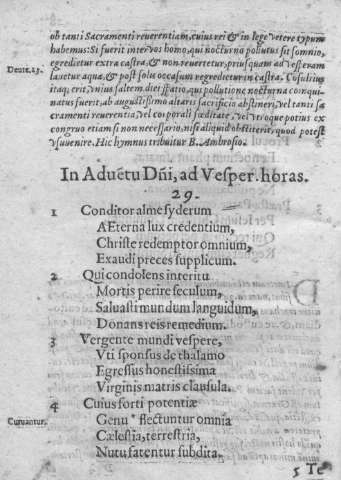 ob tanti Sacramenti reuerentiam, cuius rei & in lege vetere typum
habemus: Si fuerit inter vos homo, qui nocturno pollutus sit somnio,
egredietur extra castra, & non reuertetur, priusquam ad vesperam
Deute.23.
lauetur aqua, & post solis occasum regredietur in castra. Cōsultius
itaq; erit, vnius saltem diei spatio, qui pollutione nocturna coinqui-
natus fuerit, ab augustissimo altaris sacrificio abstineri, vel tanti sa
cramenti reuerentia, vel corporali fœditate, vel vtroque potius ex
congruo etiam si non necessario, nisi aliquid obstiterit, quod potest
vsuuenire. Hic hymnus tribuitur B. Ambrosio.
In Aduētu Dñi, ad Vesper. horas.
29.
1 Conditor alme syderum
AEterna lux credentium,
Christe redemptor omnium,
Exaudi preces supplicum.
2 Qui condolens interitu
Mortis perire seculum,
Saluasti mundum languidum,
Donans reis remedium.
3 Vergente mundi vespere,
Vti sponsus de thalamo
Egressus honestissima
Virginis matris clausula.
4 Cuius forti potentiæ
Curuantur.
Genu * flectuntur omnia
Cælestia, terrestria,
Nutu fatentur subdita.
5 Te